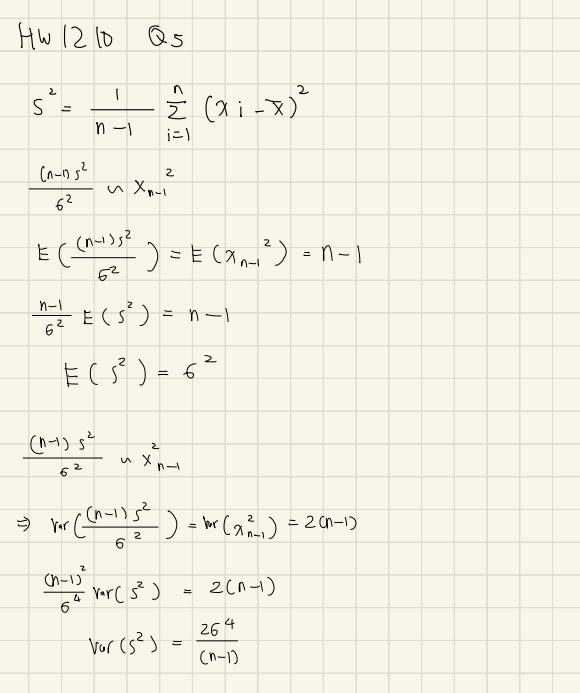 HW 1210 Q5
S² = 1/(n-1) Σ_{i=1}^{n} (xi - x̄)²
(n-1)s²/σ² ~ χ_{n-1}²
E((n-1)s²/σ²) = E(χ_{n-1}²) = n-1
(n-1)/σ² E(s²) = n-1
E(s²) = σ²
(n-1)s²/σ² ~ χ²_{n-1}
⇒ Var((n-1)s²/σ²) = Var(χ²_{n-1}) = 2(n-1)
(n-1)²/σ⁴ Var(s²) = 2(n-1)
Var(s²) = 2σ⁴/(n-1)